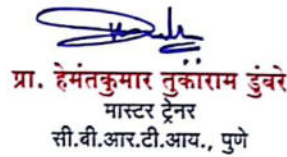 प्रा. हेमंतकुमार तुकाराम डुंबरे
मास्टर ट्रेनर
सी.बी.आर.टी.आय., पुणे